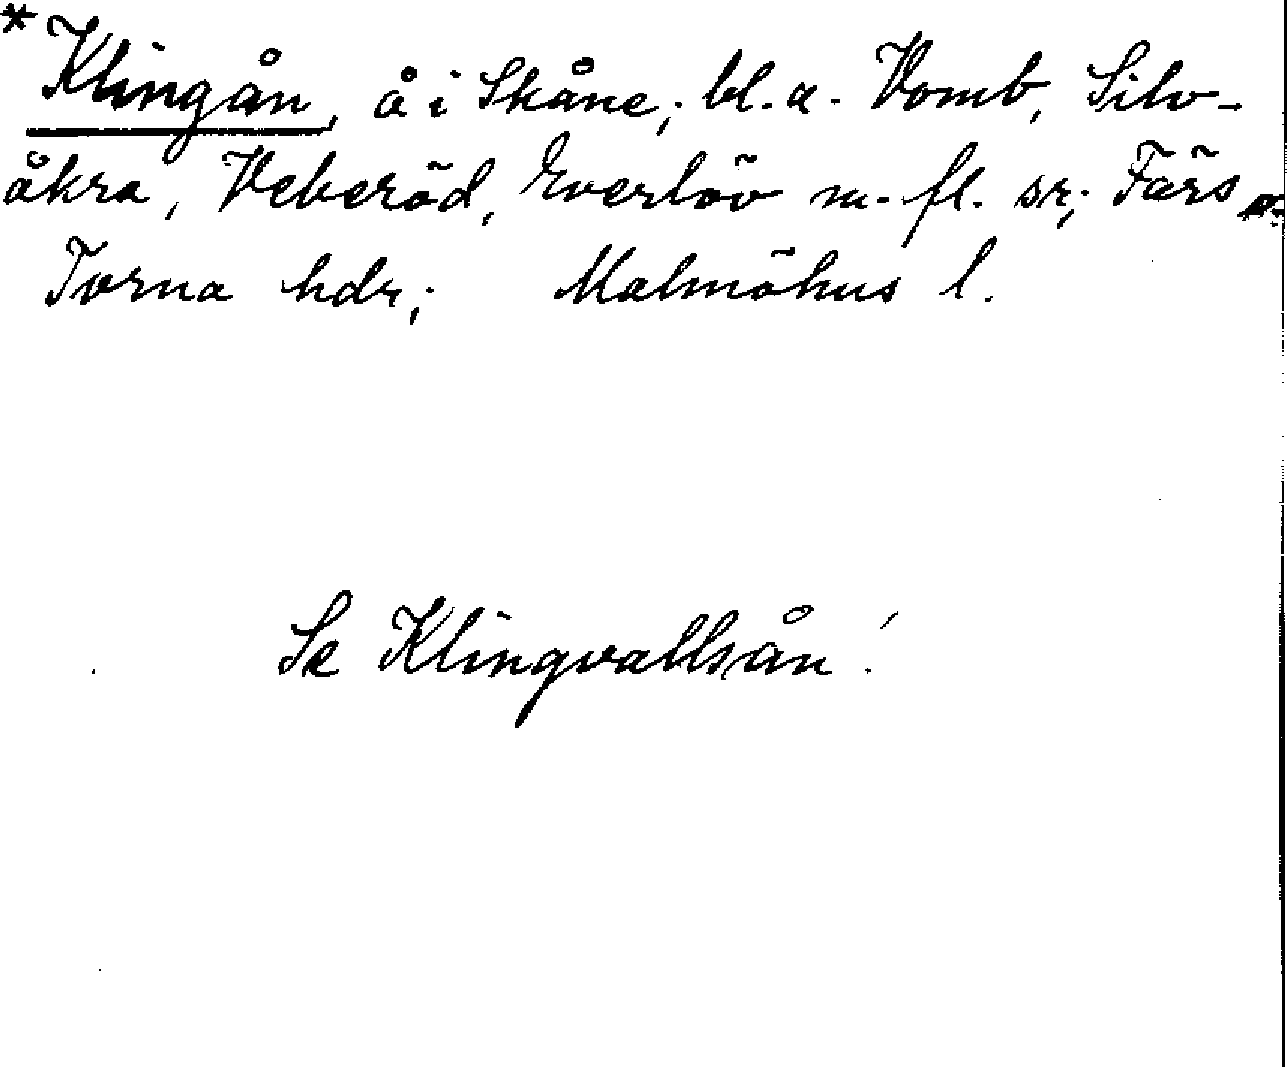 *Klingån, å i Skåne; bl.a. Vomb, Silv-
åkra, Veberöd, Everlöv m.fl. sr; Färs o.
Torna hdr; Malmöhus l.
Se Klingvallsån!